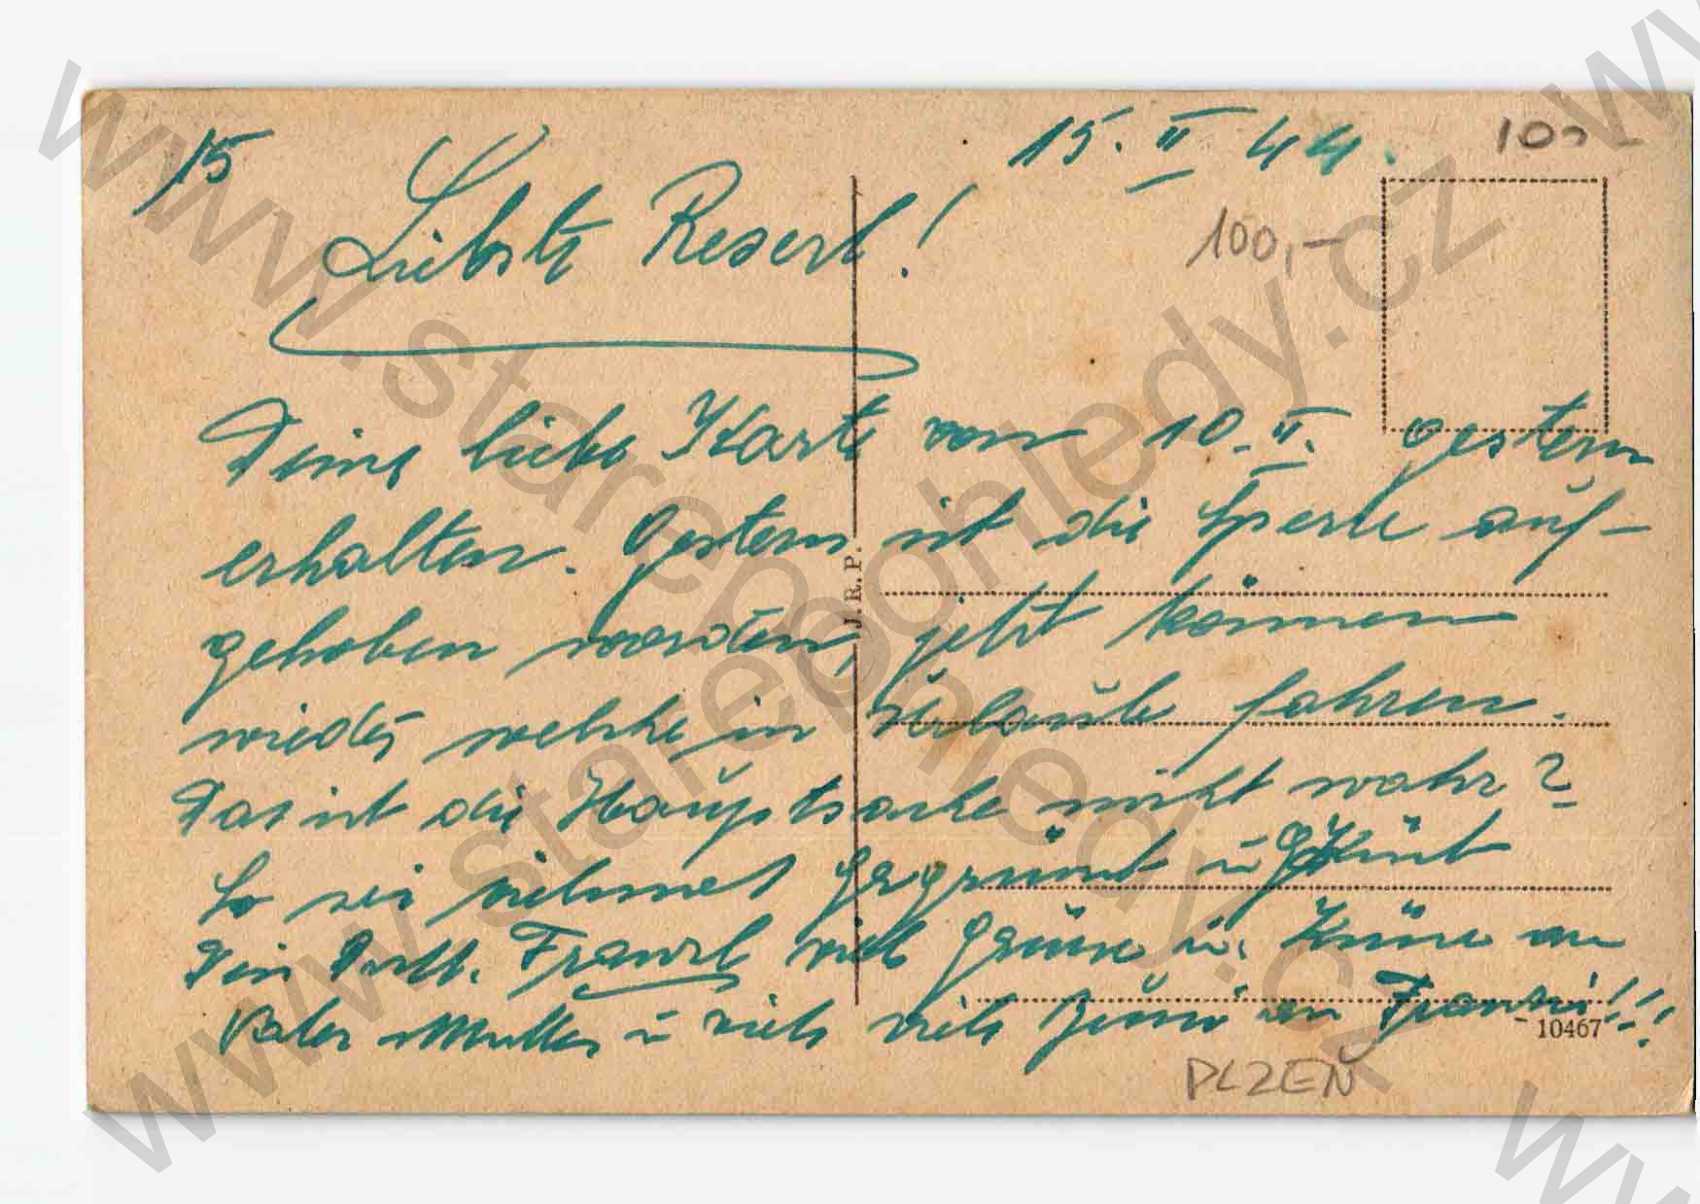 15
15. II 44.
100,-
Liebste Reserl!
Deine liebe Karte vom 10. II. gestern
erhalten. Gestern ist die Sperre auf-
gehoben worden, jetzt können
wieder welche in Urlaub fahren.
Das ist die Hauptsache nicht wahr?
So sei vielmals gegrüsst u. geküsst
Dein Franzl viele Grüsse u. Küsse an
Vater Mutter u viele viele an Franzi!!!
J.R.P.
10467
PLZEŇ
www.starepohledy.cz
www.starepohledy.cz